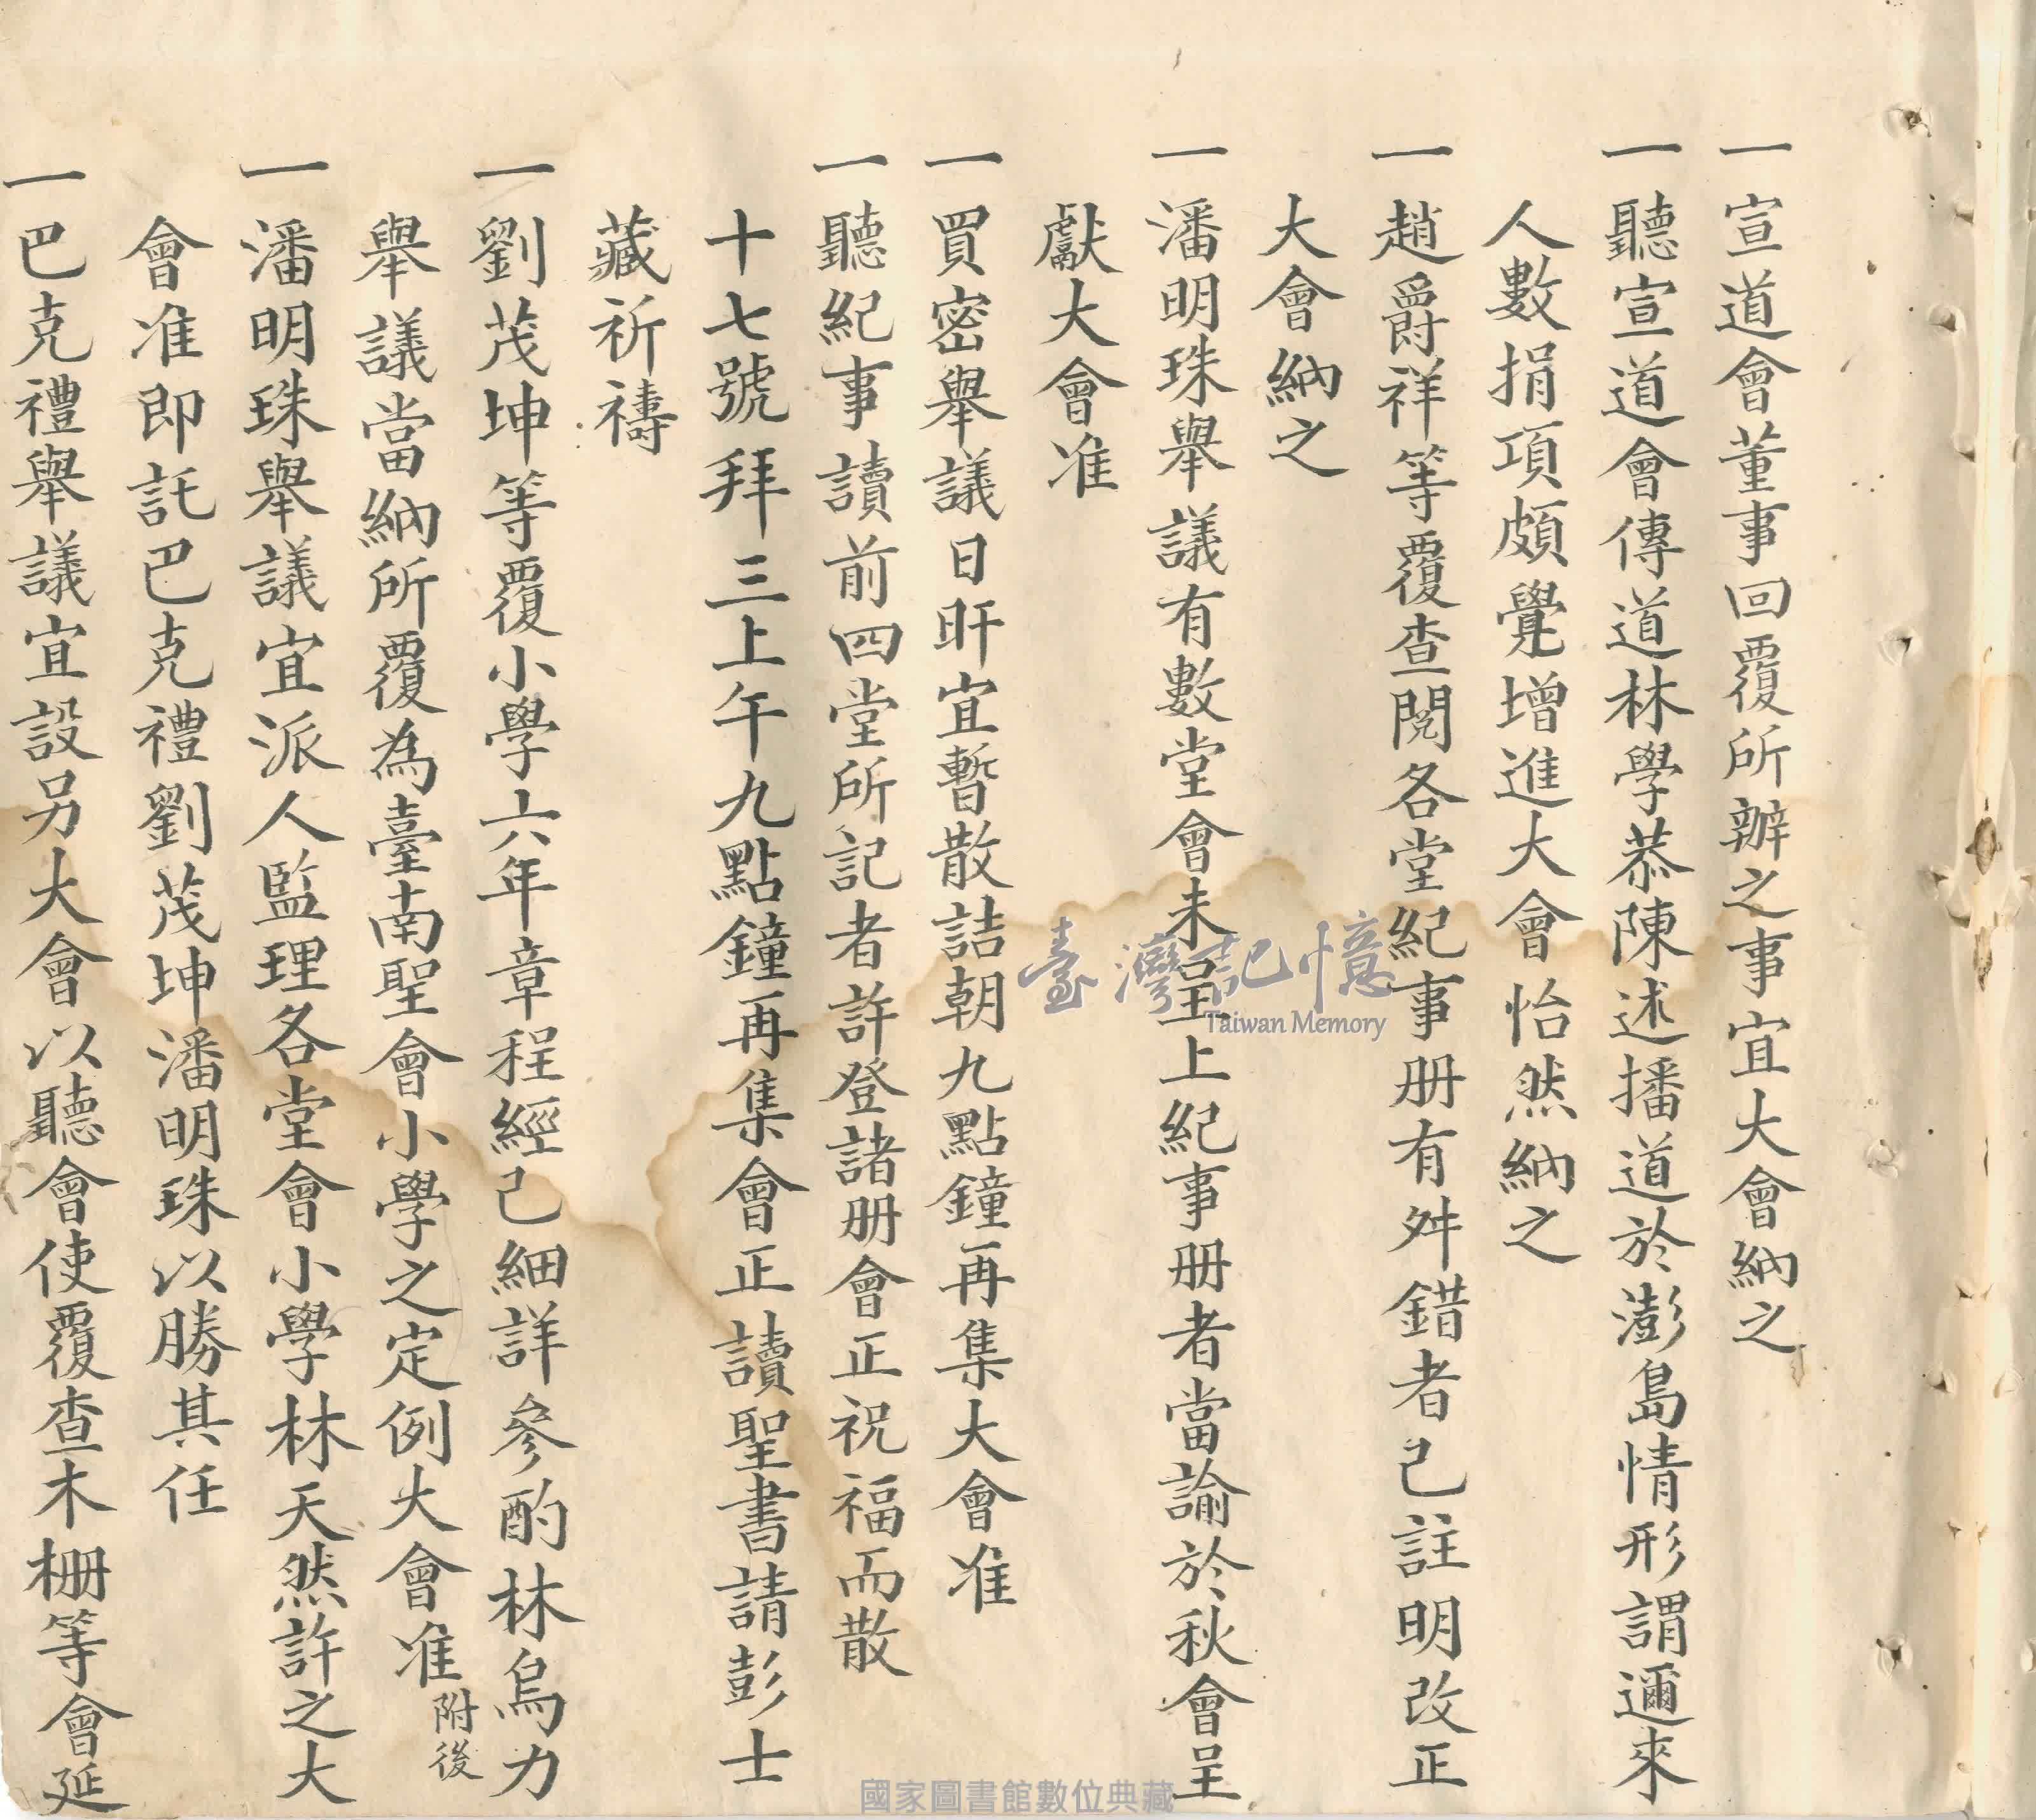 一宣道會董事回覆所辦之事宜大會納之
一聽宣道會傳道林學恭陳述播道於澎島情形謂邇來
人數捐項頗覺增進大會怡然納之
一趙爵祥等覆查閱各堂紀事册有舛錯者己註明改正
大會納之
一潘明珠舉議有數堂會未呈上紀事册者當諭於秋會呈
獻大會准
一買密舉議日旰宜暫散詰朝九點鐘再集大會准
一聽紀事讀前四堂所記者許登諸册會正祝福而散
十七號拜三上午九點鐘再集會正讀聖書請彭士
藏祈禱
一劉茂坤等覆小學六年章程經己細詳參酌林烏力
舉議當納所覆為臺南聖會小學之定例大會准附後
一潘明珠舉議宜派人監理各堂會小學林天然許之大
會准即託巴克禮劉茂坤潘明珠以勝其任
一巴克禮舉議宜設另大會以聽會使覆查木柵等會延
臺灣記憶
Taiwan Memory
國家圖書館數位典藏